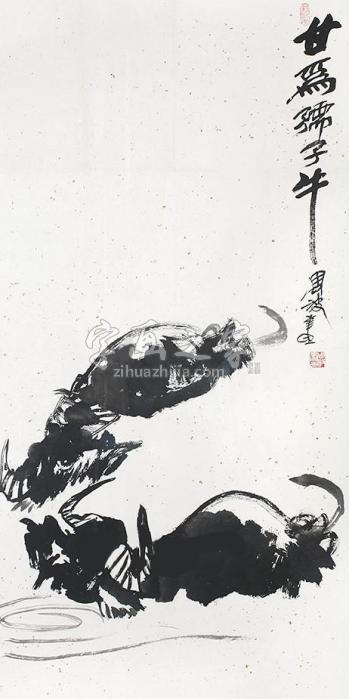 甘為孺子牛
周波畫
字画之家
zihuazhijia.com